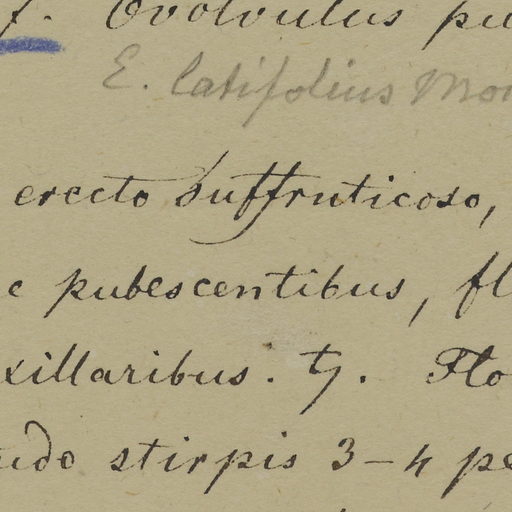 f. Ovolvulus pu
E. latifolius Mor
erecto suffruticoso,
e pubescentibus, fl
xillaribus. ♄. Flo
udo stirpis 3-4 pe